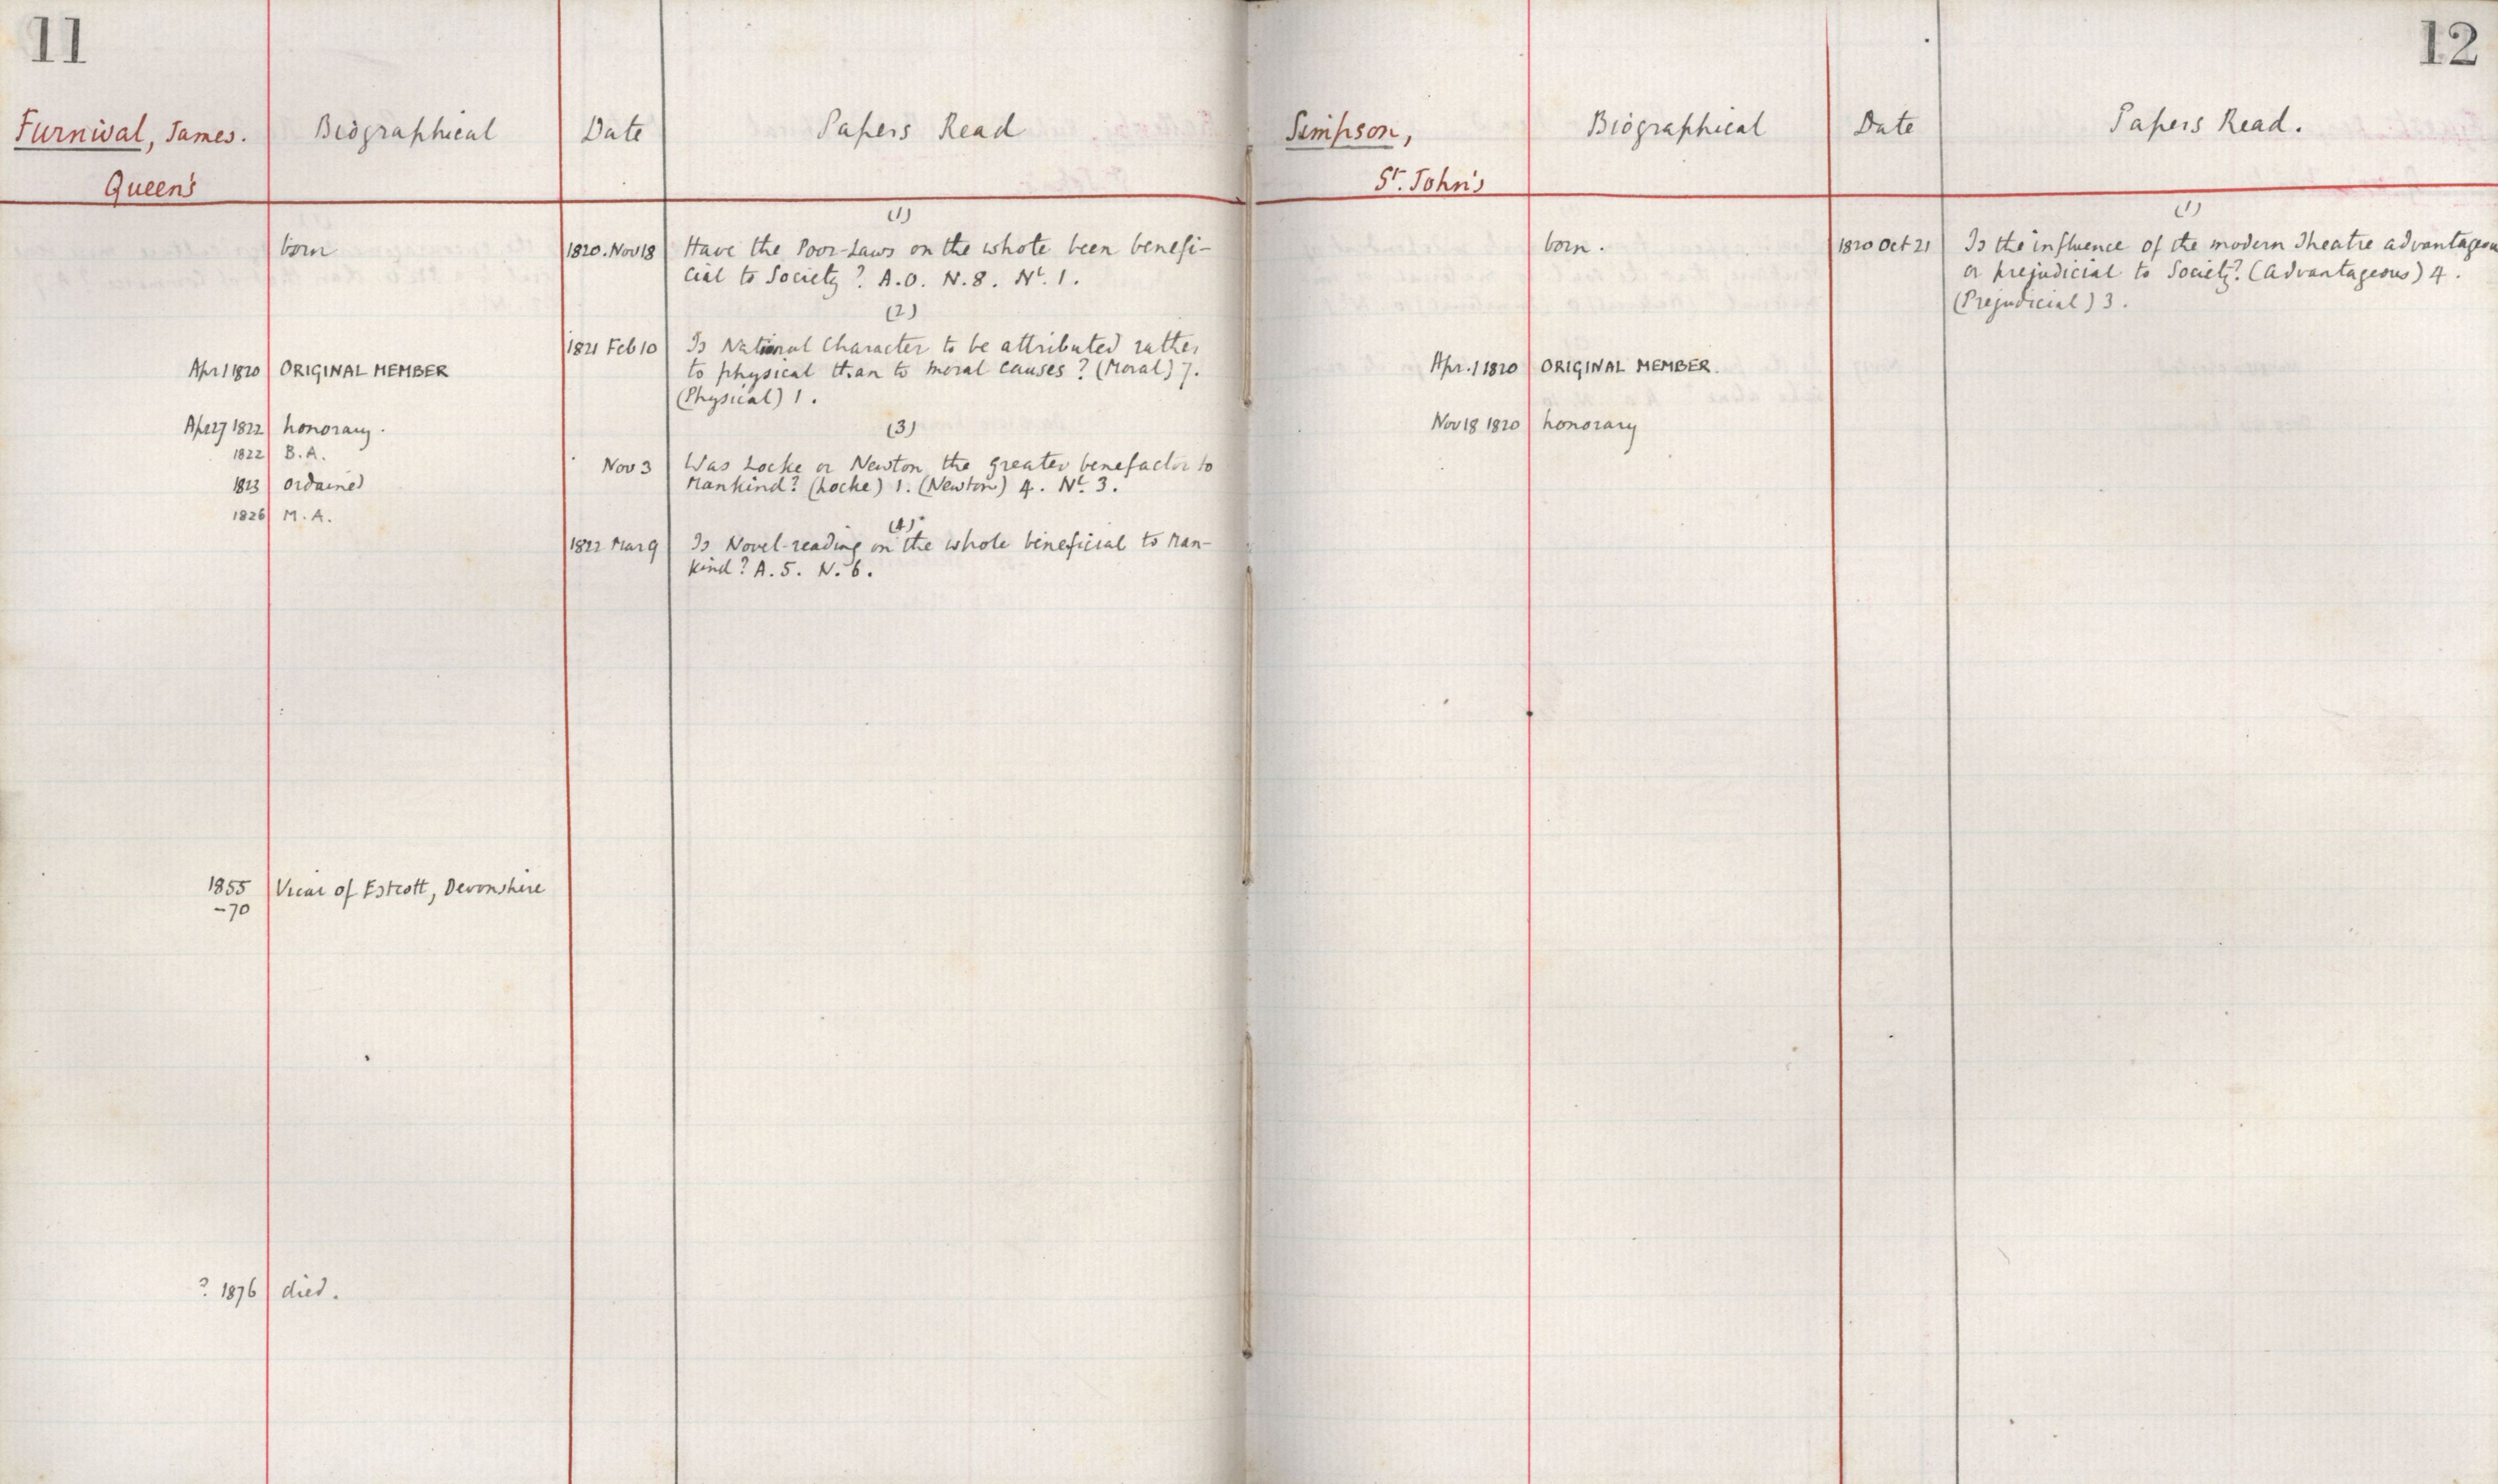 11
Furnival, James.
Queen's
Biographical
Date
Papers Read
born
Apr 1 1820 ORIGINAL MEMBER
Apr 27 1822 honorary.
1822 B.A.
1823 ordained
1826 M.A.
1855 Vicar of Estcott, Devonshire
-70
? 1876 died.
(1)
1820. Nov 18 Have the Poor-Laws on the whole been benefi-
cial to Society? A.O. N.8. Nl. 1.
(2)
1821 Feb 10 Is National Character to be attributed rather
to physical than to moral causes? (Moral) 7.
(Physical) 1.
(3)
Nov 3 Was Locke or Newton the greater benefactor to
Mankind? (Locke) 1. (Newton) 4. Nl. 3.
(4)
1822 Mar 9 Is Novel-reading on the whole beneficial to Man-
kind? A.5. N.6.
12
Simpson,
St. John's
Biographical
Date
Papers Read.
born.
Apr. 1 1820 ORIGINAL MEMBER.
Nov 18 1820 honorary
(1)
1820 Oct 21 Is the influence of the modern Theatre advantageou
or prejudicial to Society? (Advantageous) 4.
(Prejudicial) 3.